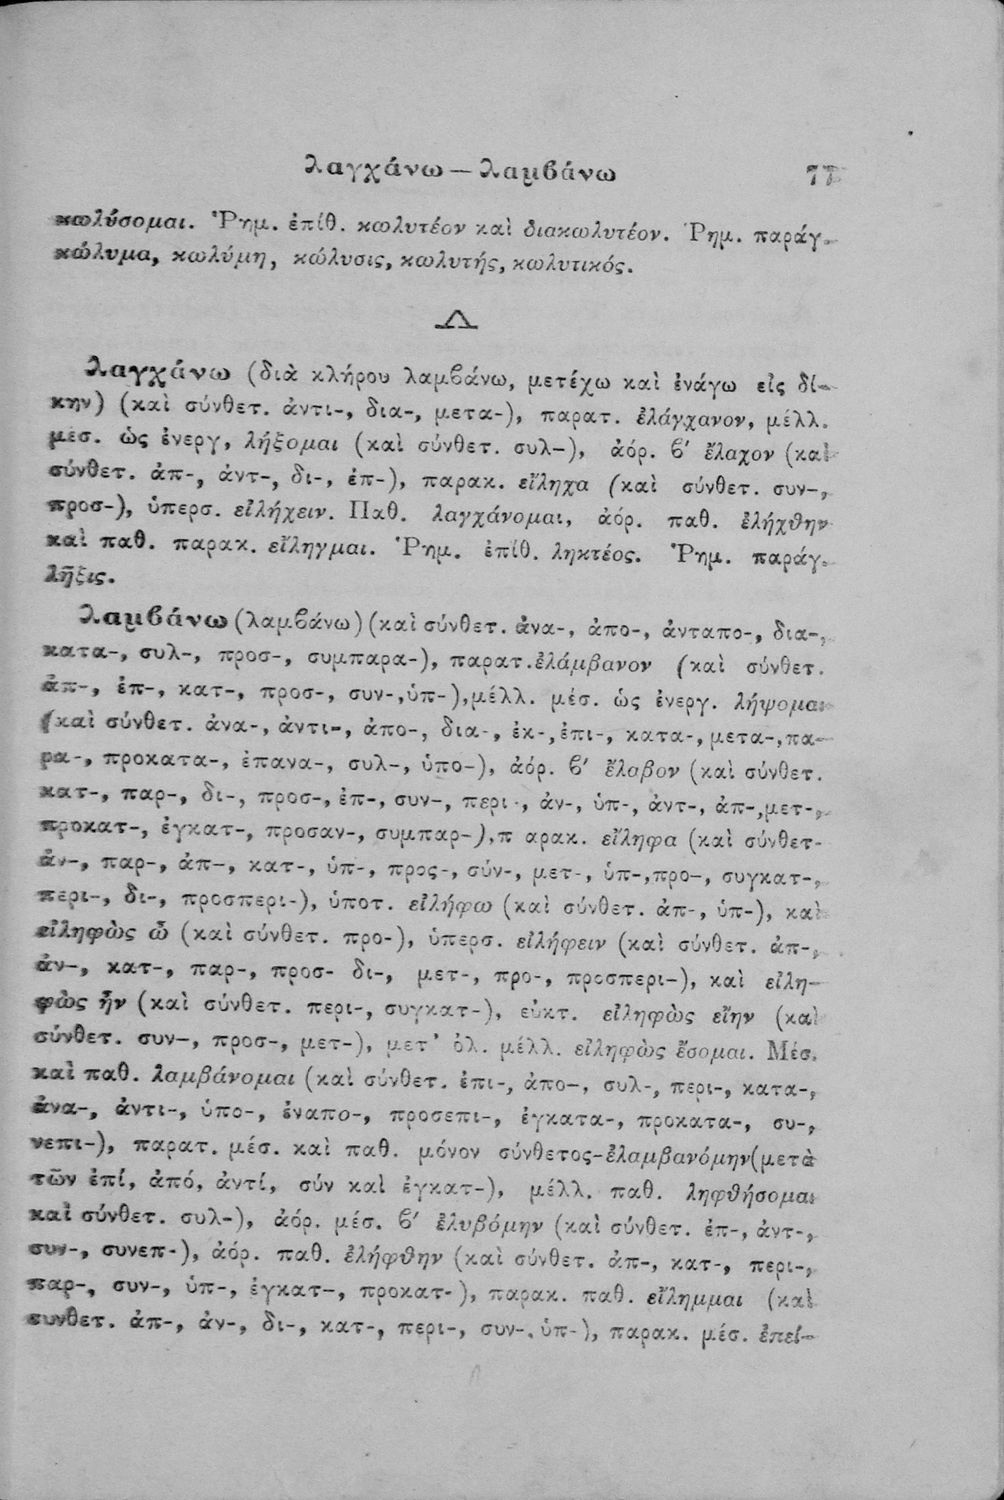 λαγχάνω — λαμβάνω 77
κωλύσομαι. Ῥημ. ἐπίθ. κωλυτέον καὶ διακωλυτέον. Ῥημ. παράγ.
κώλυμα, κωλύμη, κώλυσις, κωλυτής, κωλυτικός.
Λ
λαγχάνω (διὰ κλήρου λαμβάνω, μετέχω καὶ ἐνάγω εἰς δί-
κην) (καὶ σύνθετ. ἀντι-, δια-, μετα-), παρατ. ἐλάγχανον, μέλλ.
μέσ. ὡς ἐνεργ, λήξομαι (καὶ σύνθετ. συλ-), ἀόρ. β′ ἔλαχον (καὶ
σύνθετ. ἀπ-, ἀντ-, δι-, ἐπ-), παρακ. εἴληχα (καὶ σύνθετ. συν-,
προσ-), ὑπερσ. εἰλήχειν. Παθ. λαγχάνομαι, ἀόρ. παθ. ἐλήχθην
καὶ παθ. παρακ. εἴληγμαι. Ῥημ. ἐπίθ. ληκτέος. Ῥημ. παράγ.
λῆξις.
λαμβάνω (λαμβάνω) (καὶ σύνθετ. ἀνα-, ἀπο-, ἀνταπο-, δια-,
κατα-, συλ-, προσ-, συμπαρα-), παρατ. ἐλάμβανον (καὶ σύνθετ.
ἀπ-, ἐπ-, κατ-, προσ-, συν-, ὑπ-), μέλλ. μέσ. ὡς ἐνεργ. λήψομαι
(καὶ σύνθετ. ἀνα-, ἀντι-, ἀπο-, δια-, ἐκ-, ἐπι-, κατα-, μετα-, πα-
ρα-, προκατα-, ἐπανα-, συλ-, ὑπο-), ἀόρ. β′ ἔλαβον (καὶ σύνθετ.
κατ-, παρ-, δι-, προσ-, ἐπ-, συν-, περι-, ἀν-, ὑπ-, ἀντ-, ἀπ-, μετ-,
προκατ-, ἐγκατ-, προσαν-, συμπαρ-), π αρακ. εἴληφα (καὶ σύνθετ-
ἀν-, παρ-, ἀπ-, κατ-, ὑπ-, προς-, σύν-, μετ-, ὑπ-, προ-, συγκατ-,
περι-, δι-, προσπερι-), ὑποτ. εἰλήφω (καὶ σύνθετ. ἀπ-, ὑπ-), καὶ
εἰληφὼς ὦ (καὶ σύνθετ. προ-), ὑπερσ. εἰλήφειν (καὶ σύνθετ. ἀπ-,
ἀν-, κατ-, παρ-, προσ- δι-, μετ-, προ-, προσπερι-), καὶ εἰλη-
φὼς ἦν (καὶ σύνθετ. περι-, συγκατ-), εὐκτ. εἰληφὼς εἴην (καὶ
σύνθετ. συν-, προσ-, μετ-), μετ' ὀλ. μέλλ. εἰληφὼς ἔσομαι. Μέσ.
καὶ παθ. λαμβάνομαι (καὶ σύνθετ. ἐπι-, ἀπο-, συλ-, περι-, κατα-,
ἀνα-, ἀντι-, ὑπο-, ἐναπο-, προσεπι-, ἐγκατα-, προκατα-, συ-,
νεπι-), παρατ. μέσ. καὶ παθ. μόνον σύνθετος-ἐλαμβανόμην (μετὰ
τῶν ἐπί, ἀπό, ἀντί, σύν καὶ ἐγκατ-), μέλλ. παθ. ληφθήσομαι
καὶ σύνθετ. συλ-), ἀόρ. μέσ. β′ ἐλυβόμην (καὶ σύνθετ. ἐπ-, ἀντ-,
συν-, συνεπ-), ἀόρ. παθ. ἐλήφθην (καὶ σύνθετ. ἀπ-, κατ-, περι-,
παρ-, συν-, ὑπ-, ἐγκατ-, προκατ-), παρακ. παθ. εἴλημμαι (καὶ
συνθετ. ἀπ-, ἀν-, δι-, κατ-, περι-, συν-. ὑπ-), παρακ. μέσ. ἐπεί-